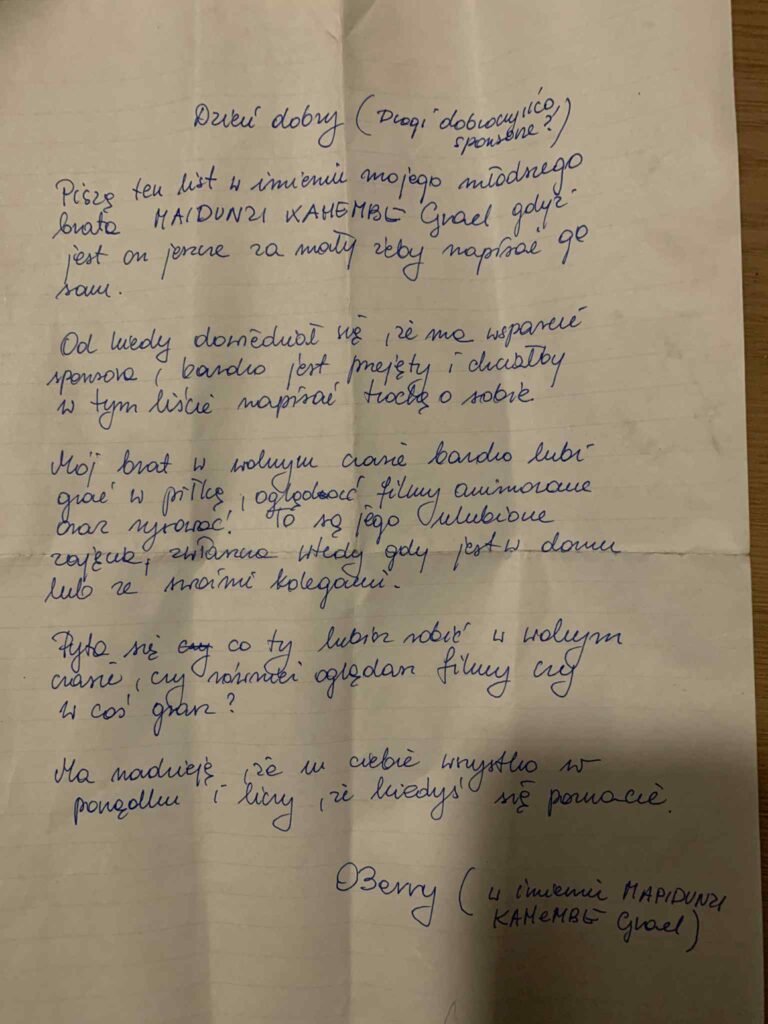 Dzień dobry (Drogi dobroczyńco,
sponsorze?)
Piszę ten list w imieniu mojego młodszego
brata MAIDUNZI KAHEMBE Grael gdyż
jest on jeszcze za mały żeby napisać go
sam.
Od kiedy dowiedział się, że ma wsparcie
sponsora, bardzo jest przejęty i chciałby
w tym liście napisać trochę o sobie
Mój brat w wolnym czasie bardzo lubi
grać w piłkę, oglądać filmy animowane
oraz rysować. To są jego ulubione
zajęcia, zwłaszcza wtedy gdy jest w domu
lub ze swoimi kolegami.
Pyta się czy co ty lubisz robić w wolnym
czasie, czy również oglądasz filmy czy
w coś grasz?
Ma nadzieję, że u ciebie wszystko w
porządku i liczy, że kiedyś się poznacie.
OBerry (w imieniu MAPIDUNZI
KAHEMBE Grael)